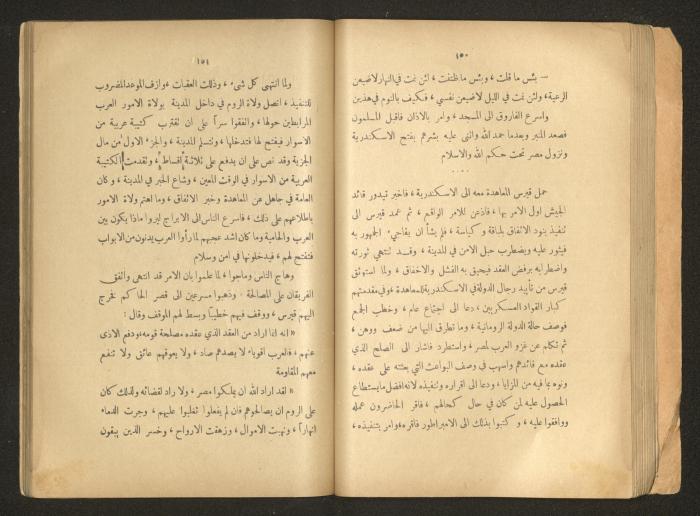 ١٥٠
— بئس ما قلت ، وبئس ما ظننت ، لئن نمت في النهار لاضيعن
الرعية ، ولئن نمت في الليل لاضيعن نفسي ، فكيف بالنوم في هذين
واسرع الفاروق الى المسجد ، وامر بالاذان فاقبل المسلمون
فصعد المنبر وبعدما حمد الله واثنى عليه بشرهم بفتح الاسكندرية
ونزول مصر تحت حكم الله والاسلام
. . . .
حمل قيرس المعاهدة معه الى الاسكندرية ، فاخبر تيدور قائد
الجيش اول الامر بها ، فاذعن للامر الواقع ، ثم عمد قيرس الى
تنفيذ بنود الاتفاق بلباقة وكياسة ، فلم يشأ ان يفاجيء الجمهور به
فيثور عليه ويضطرب حبل الامن في المدينة ، وقد تنتهي ثورته
واضطرابه برفض العقد فيحيق به الفشل والاخفاق ، ولما استوثق
قيرس من تأييد رجال الدولة في الاسكندرية للمعاهدة ، وفي مقدمتهم
كبار القواد العسكريين ، دعا الى اجتماع عام ، وخطب الجمع
فوصف حالة الدولة الرومانية ، وما تطرق اليها من ضعف ووهن ،
ثم تكلم عن غزو العرب لمصر ، واستطرد فاشار الى الصلح الذي
عقده مع قائدهم واسهب في وصف البواعث التي بعثته على عقده ،
ونوه بما فيه من المزايا ، ودعا الى اقراره وتنفيذه لانه افضل ما يستطاع
الحصول عليه لمن كان في حال كحالهم ، فاقر الحاضرون عمله
ووافقوا عليه ، وكتبوا بذلك الى الامبراطور فاقره ، وامر بتنفيذه ،
١٥١
ولما انتهى كل شيء ، وذللت العقبات ، وازف الموعد المضروب
للتنفيذ ، اتصل ولاة الروم في داخل المدينة بولاة الامور العرب
المرابطين حولها ، واتفقوا سراً على ان تقترب كتيبة عربية من
الاسوار فيفتح لها فتدخلها ، وتتسلم المدينة ، والجزء الاول من مال
الجزية وقد نص على ان يدفع على ثلاثة اقساط ، وتقدمت الكتيبة
العربية من الاسوار في الوقت المعين ، وشاع الخبر في المدينة ، وكان
العامة في جاهل عن المعاهدة وخبر الاتفاق ، وما اهتم ولاة الامور
باطلاعهم على ذلك ، فاسرع الناس الى الابراج ليروا ماذا يكون بين
العرب والحامية وما كان اشد عجبهم لما رأوا العرب يدنون من الابواب
فتفتح لهم ، فيدخلونها في امن وسلام
وهاج الناس وماجوا ، لما علموا بان الامر قد انتهى واتفق
الفريقان على المصالحة . وذهبوا مسرعين الى قصر الحاكم فخرج
اليهم قيرس ، ووقف فيهم خطيباً وبسط لهم الموقف وقال :
« انه انما اراد من العقد الذي عقده مصلحة قومه ، ودفع الاذى
عنهم ، فالعرب اقوياء لا يصدهم صاد ، ولا يعوقهم عائق ولا تنفع
معهم المقاومة
« لقد اراد الله ان يملكوا مصر ، ولا راد لقضائه ولذلك كان
على الروم ان يصالحوهم فان لم يفعلوا تغلبوا عليهم ، وجرت الدماء
انهاراً ، ونهبت الاموال ، وزهقت الارواح ، وخسر الذين يبقون